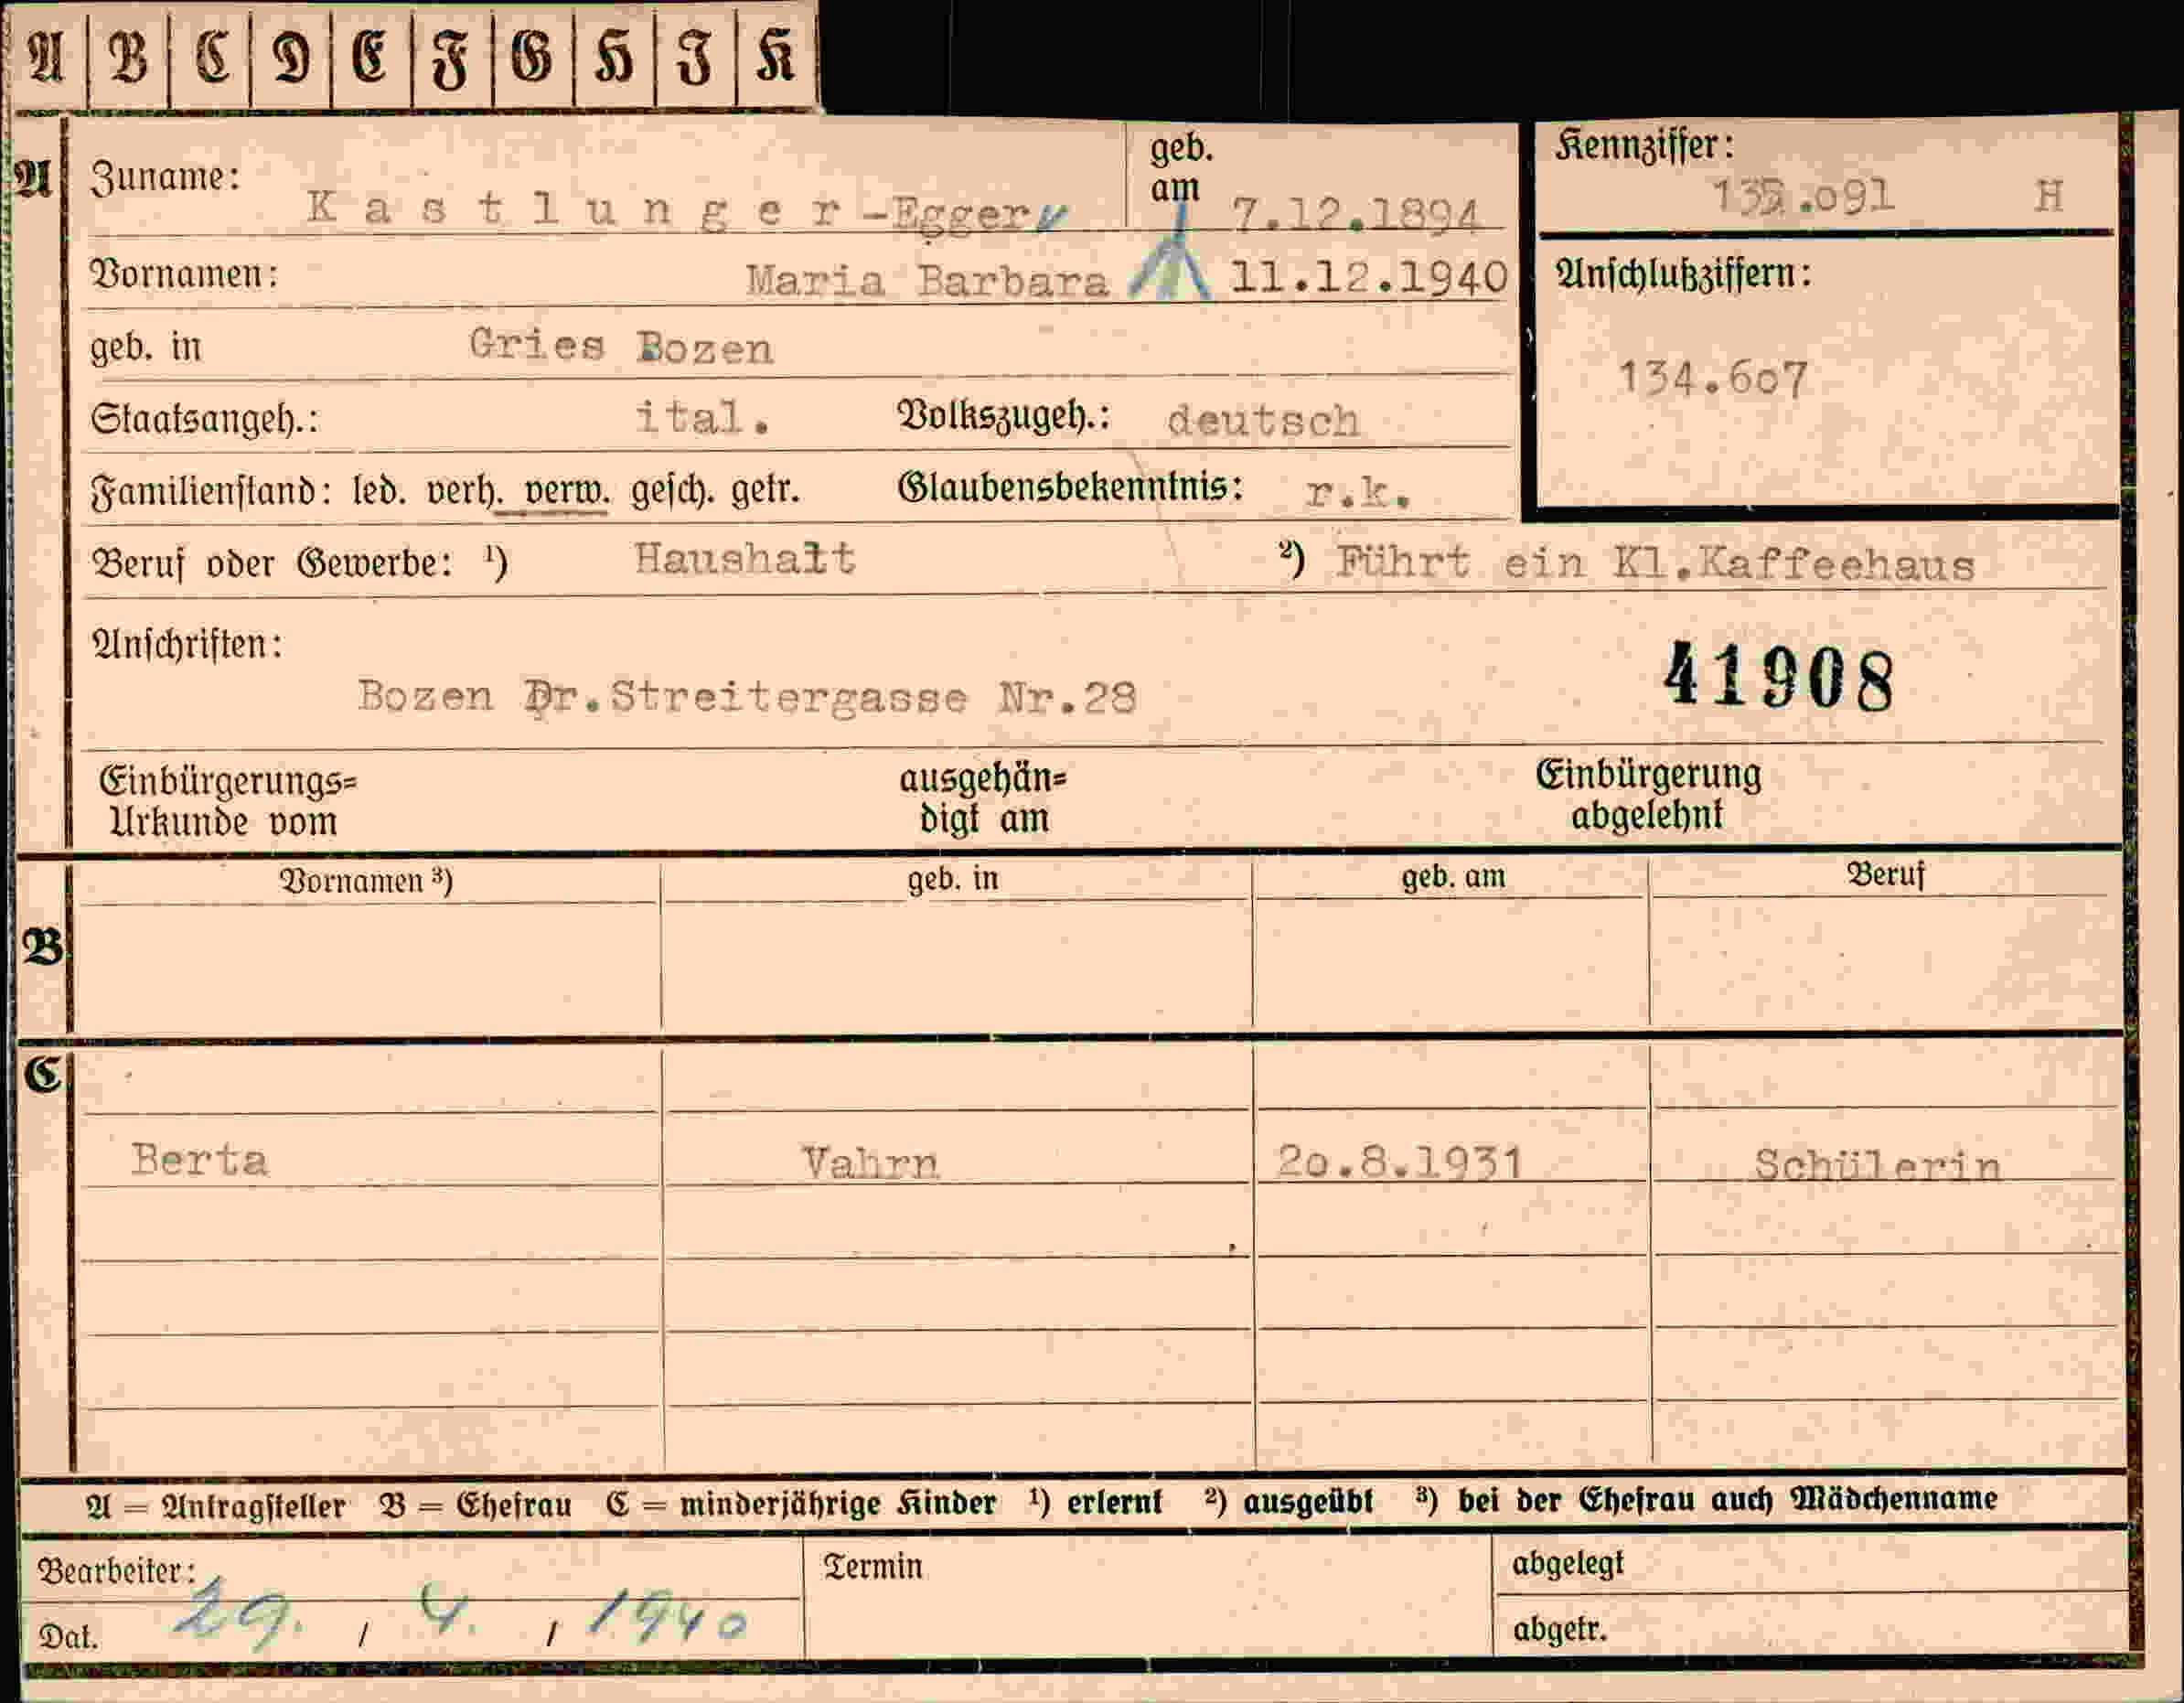 A B C D E F G H I K
A Zuname: Kastlunger-Egger geb. am 7.12.1894 Kennziffer: .091 H
Vornamen: Maria Barbara 11.12.1940 Anschlußziffern:
geb. in Gries Bozen 134.607
Staatsangeh.: ital. Volkszugeh.: deutsch
Familienstand: led. verh. verw. gesch. getr. Glaubensbekenntnis: r.k.
Beruf oder Gewerbe: 1) Haushalt 2) Führt ein Kl.Kaffeehaus
Anschriften: 41908
Bozen Dr.Streitergasse Nr.28
Einbürgerungs= ausgehän= Einbürgerung
Urkunde vom digt am abgelehnt
Vornamen 3) geb. in geb. am Beruf
B
C
Berta Vahrn 20.8.1931 Schülerin
A = Antragsteller B = Ehefrau C = minderjährige Kinder 1) erlernt 2) ausgeübt 3) bei der Ehefrau auch Mädchenname
Bearbeiter: Termin abgelegt
Dat. 29. / 4. / 1940 abgetr.